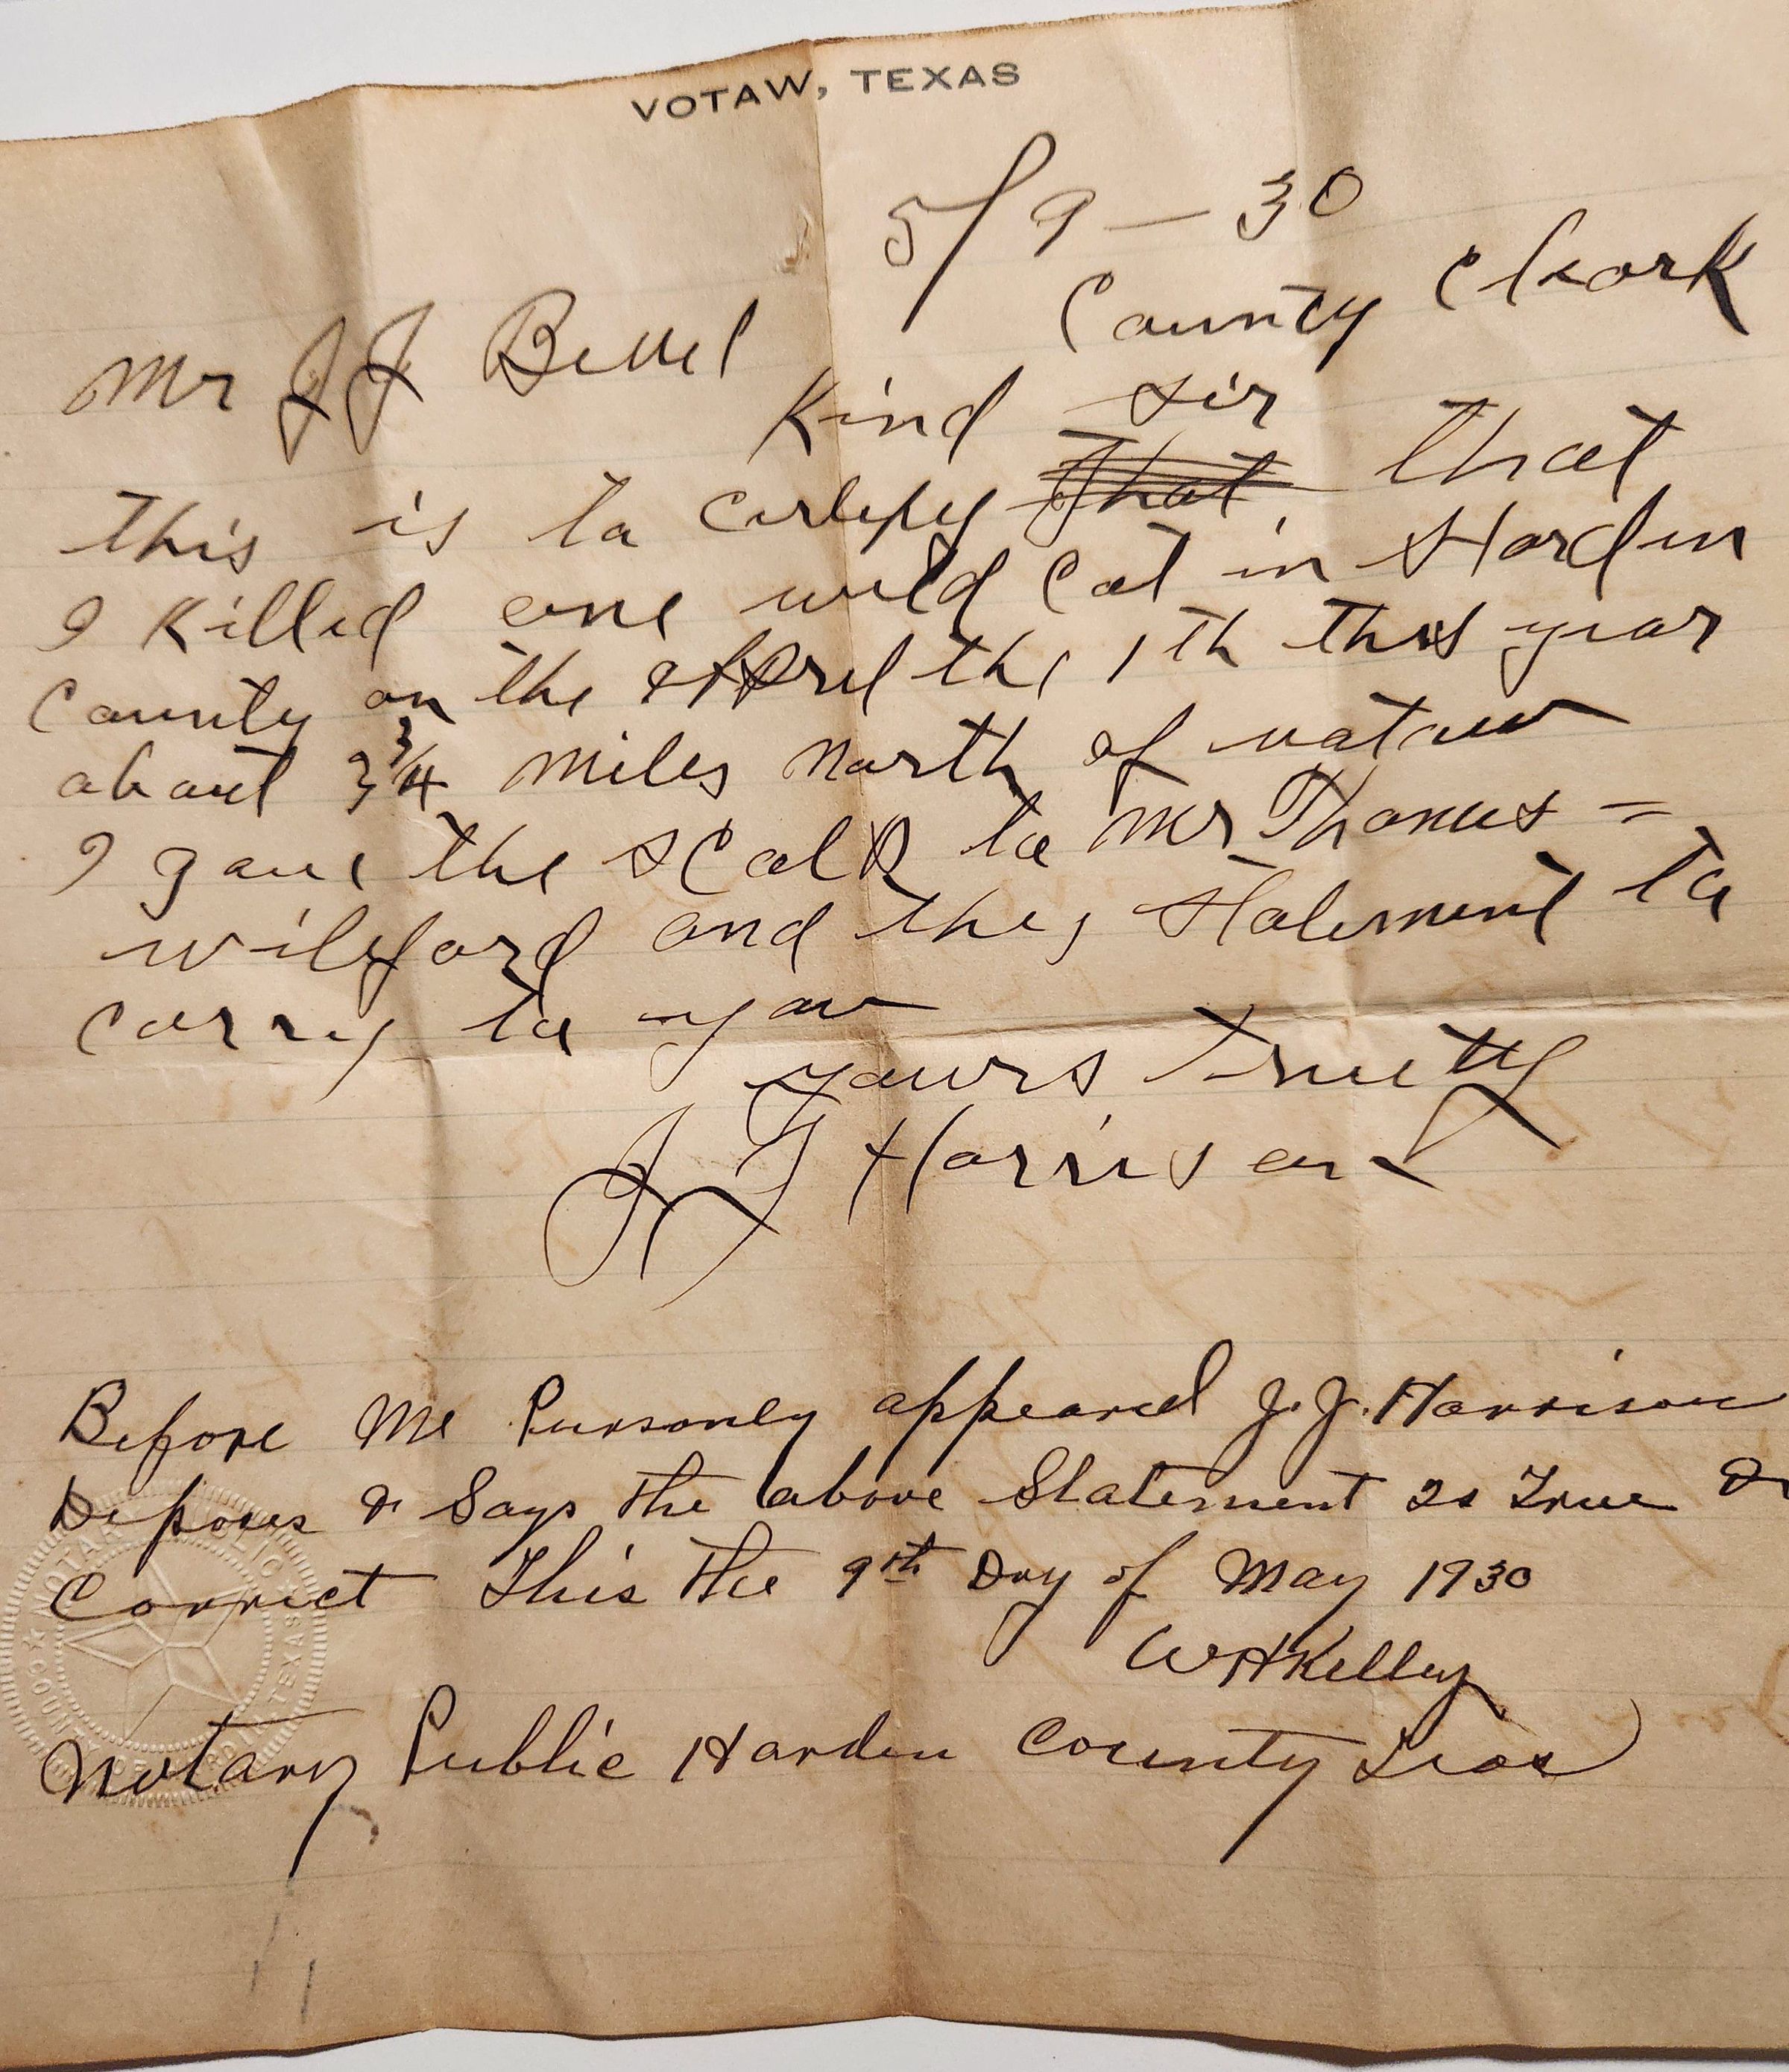 VOTAW, TEXAS
5/9-30
County Cleark
Mr J J Bevel
Kind sir
this is to certyfy That that
I Killed one wild Cat in Hardin
County on the Appril the 1th this year
about 3 3/4 Miles North of votaw
I gave the scalp to Mr Thomas =
wilford and they statement to
carry to you
yours truely
J J Harrison
Before Me Pursonly appeared J. J. Harrison
Deposes & Says the above Statement Is True &
Correct This the 9th Day of May 1930
W H Kelley
Notary Public Harden County Texas
NOTARY PUBLIC
COUNTY OF HARDIN, TEXAS